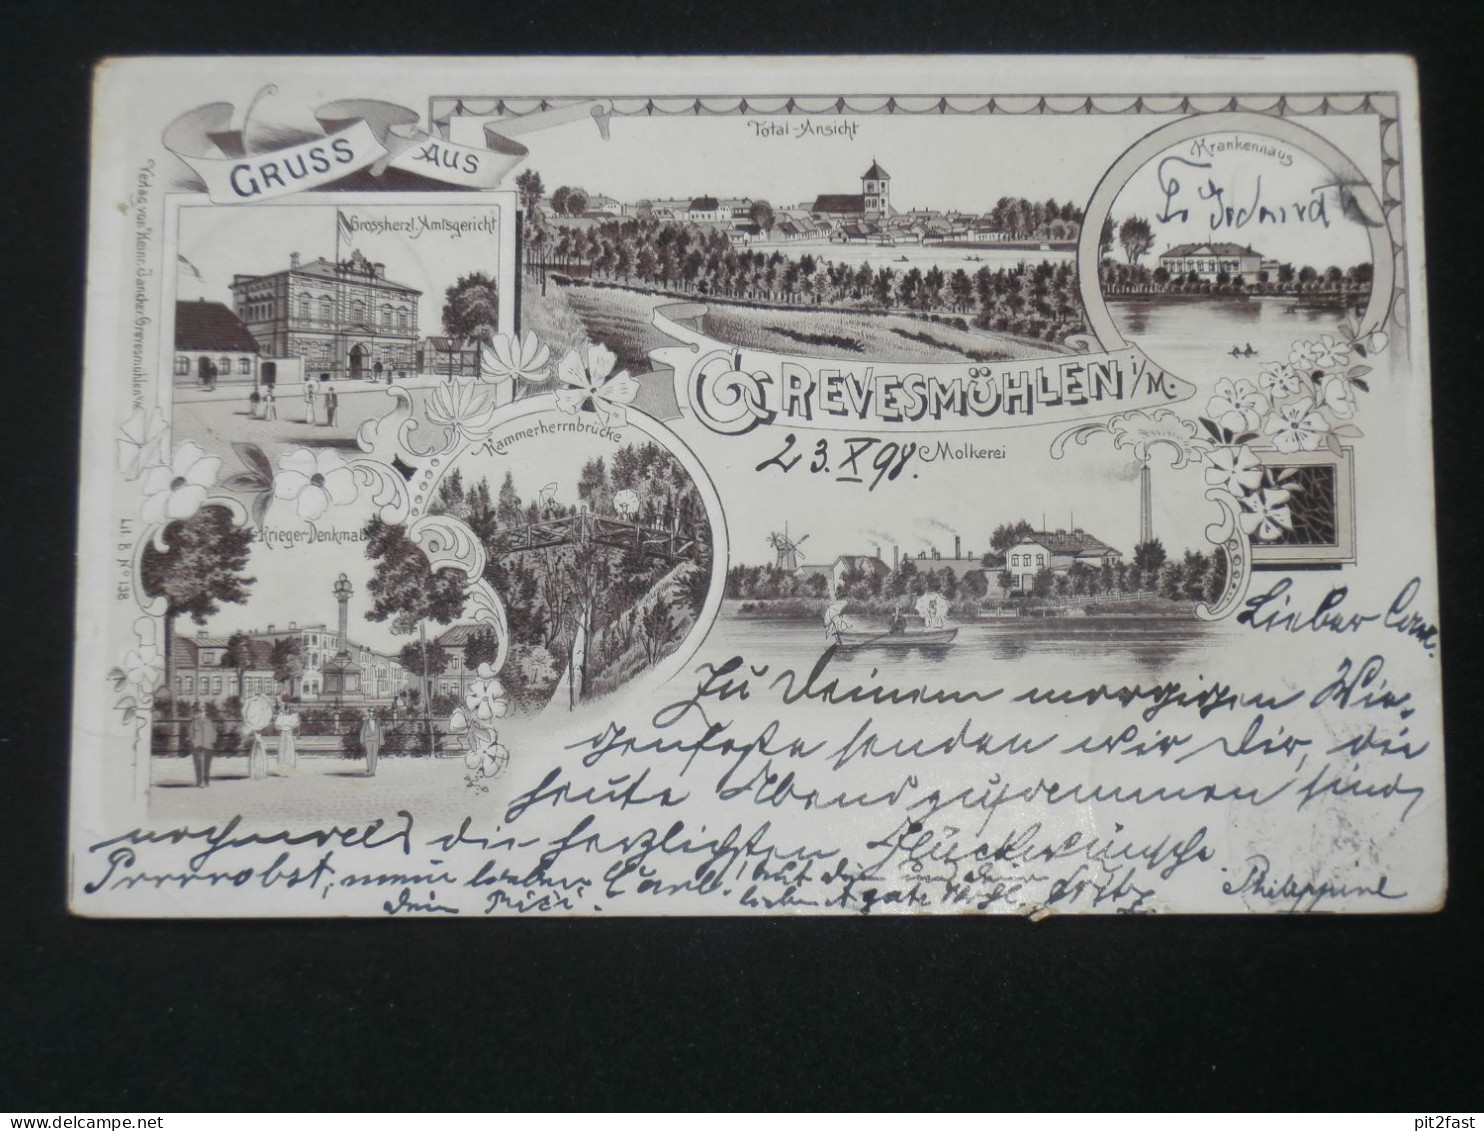 GRUSS AUS
Total-Ansicht
Krankenhaus
Grossherzl. Amtsgericht
Verlag von Heinr. Jancker Grevesmühlen i/M.
GREVESMÜHLEN i/M.
Kammerherrnbrücke
23.X 98.
Molkerei
Krieger-Denkmal
Lit. B. No 138
Lieber Carl.
Zu Deinem morgigen Wie-
genfeste senden wir Dir, die
heute Abend zusammen sind,
nochmals die herzlichsten Glückwünsche
Prrrrobst, mein lieber Carl.
Dein
Fritz
Philippine
pit2fast